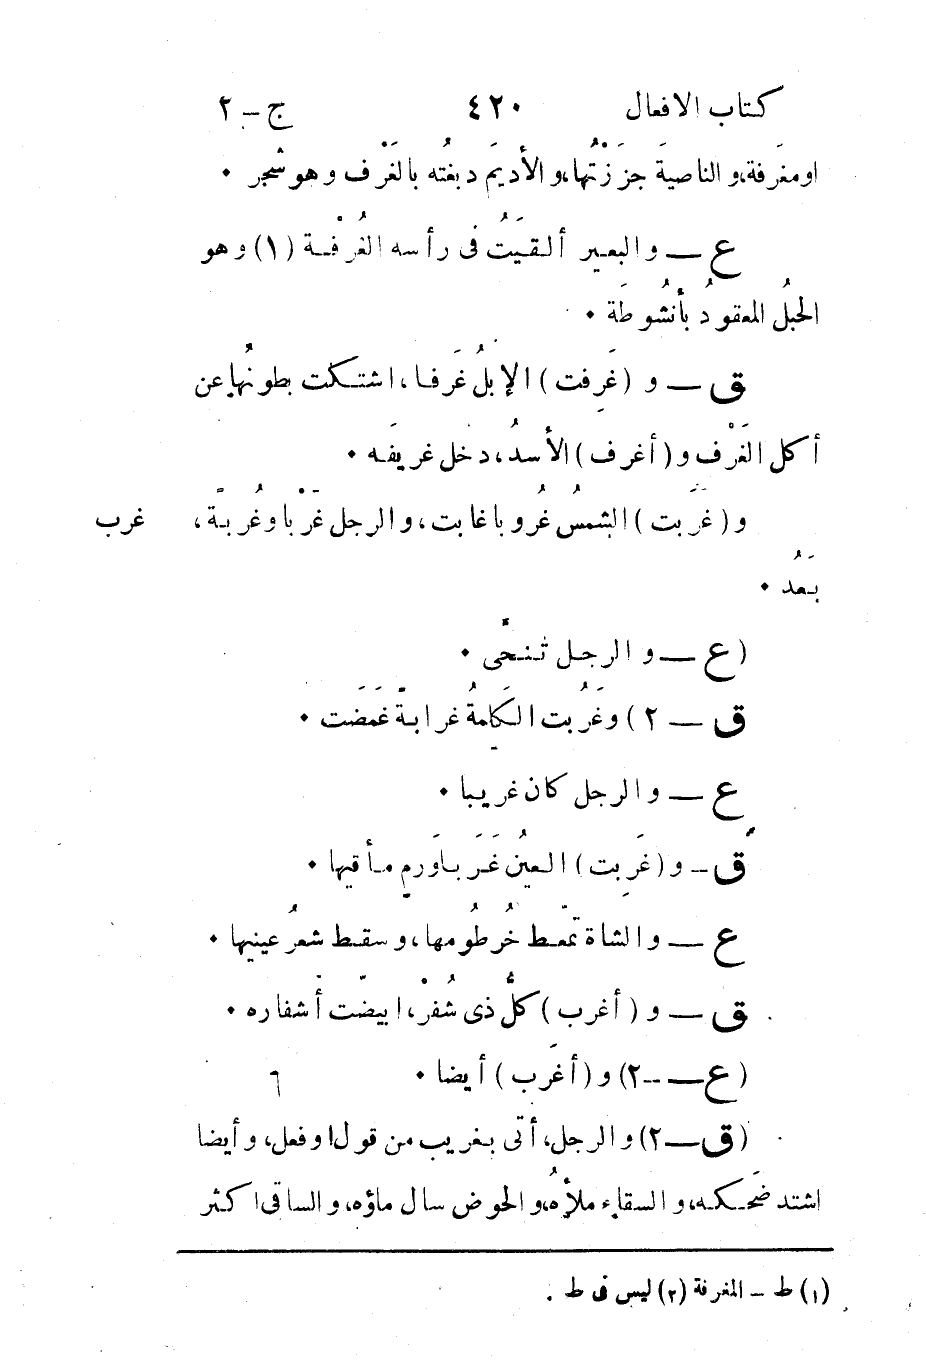 كتاب الافعال ٤٢٠ ج – ٢
او مغَرفة، و الناصيةَ جزَزْتُها، و الأديمَ دبغتُه بالغَرْف وهو شجر .
ع — والبعيرَ ألقيَتُ فى رأسه الغُرْفة (١) وهو
الحبلُ المعقودُ بأُنشُوطَة .
ق — و (غَرِفت) الإبلُ غَرَفا، اشتكت بطونُها عن
أكل الغَرْف و (أغرف) الأسدُ، دخل غريفَه .
و (غرَبت) الشمسُ غُروبا غابت، والرجل غَرْبا وغُربةً، غرب
بَعُد .
(ع — و الرجل تنحّى .
ق — ٢) وغَرُبت الكَلِمةُ غرابةً غَمَضَت .
ع — والرجل كان غريبا .
ق – و (غَرِبت) العينُ غَرَباً وَرِم مأقيها .
ع — والشاة تمعّط خُرطُومها، وسقط شعرُ عينيها .
ق — و (أغرب) كلُّ ذى شُفْر، ابيضّت أشفاره .
(ع — ٢) و (أغَرب) أيضا .
(ق — ٢) والرجل، أتى بغريب من قول او فعل، و أيضا
اشتد ضَحكه، و السقاء ملأهُ، و الحوض سال ماؤه، و الساقى اكثر
(١) ط – المغرفة (٢) ليس فى ط .